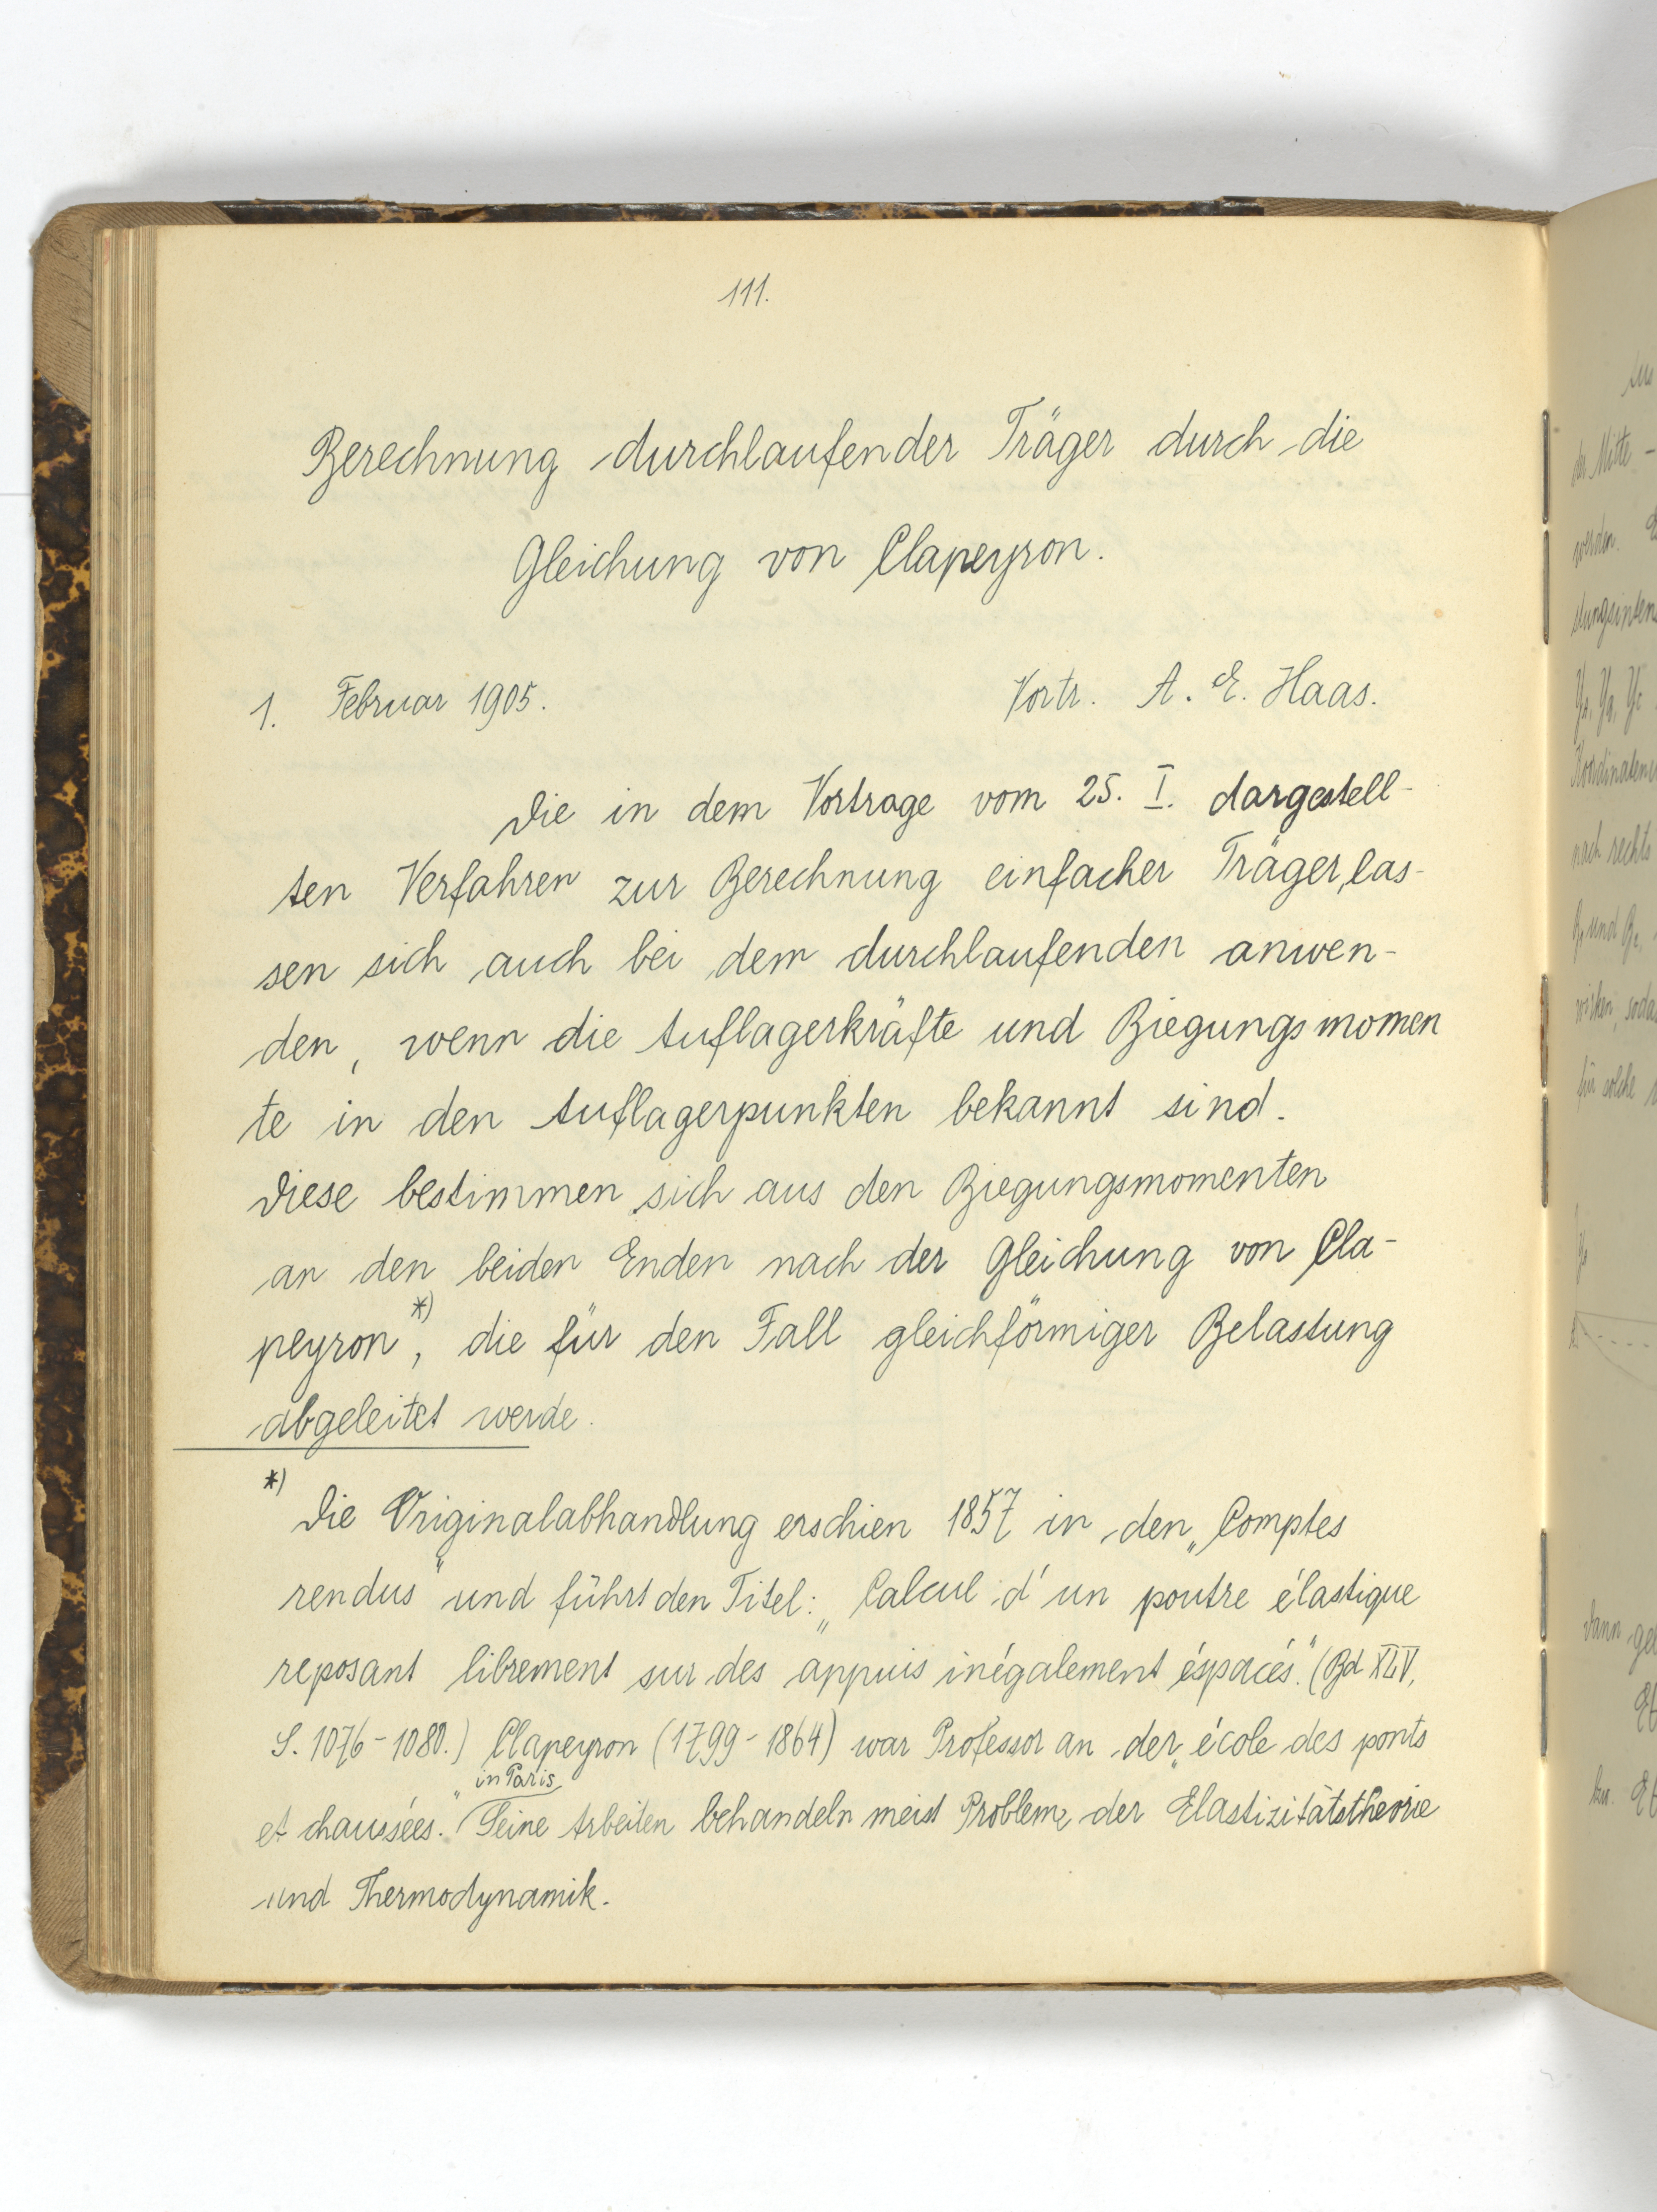 111.
Berechnung durchlaufender Träger durch die
Gleichung von Clapeyron.
1. Februar 1905. Vortr. A. E. Haas.
Die in dem Vortrage vom 25. I. dargestell-
ten Verfahren zur Berechnung einfacher Träger, las-
sen sich auch bei dem durchlaufenden anwen-
den, wenn die Auflagerkräfte und Biegungsmomen
te in den Auflagerpunkten bekannt sind.
Diese bestimmen sich aus den Biegungsmomenten
an den beiden Enden nach der Gleichung von Cla-
peyron*), die für den Fall gleichförmiger Belastung
abgeleitet werde.
*) Die Originalabhandlung erschien 1857 in den „Comptes
rendus" und führt den Titel: „Calcul d'un poutre élastique
reposant librement sur des appuis inégalement éspacés." (Bd XLV,
S. 1076-1080.) Clapeyron (1799-1864) war Professor an der „école des ponts
in Paris
et chaussées." Seine Arbeiten behandeln meist Probleme der Elastizitätstheorie
und Thermodynamik.
der Mitte -
werden.
nach rechts
wirken, soda
für solche